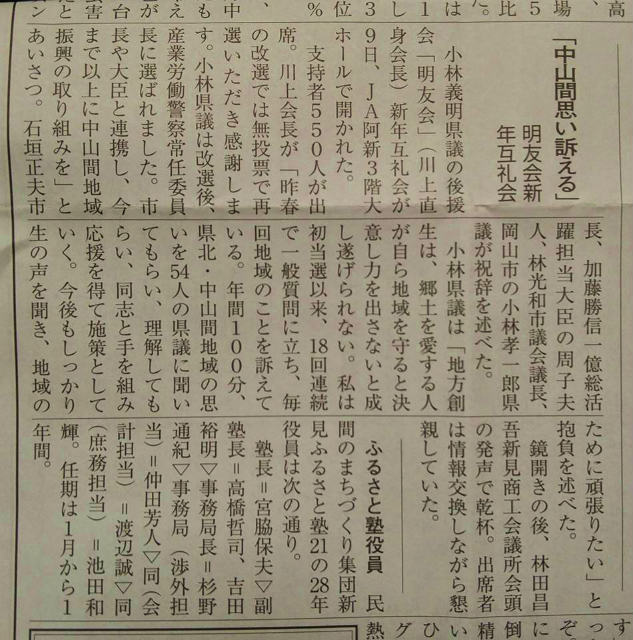 「中山間思い訴える」
明友会新
年互礼会
小林義明県議の後援
会「明友会」(川上直
身会長)新年互礼会が
9日、JA阿新3階大
ホールで開かれた。
支持者550人が出
席。川上会長が「昨春
の改選では無投票で再
選いただき感謝しま
す。小林県議は改選後、
産業労働警察常任委員
長に選ばれました。市
長や大臣と連携し、今
まで以上に中山間地域
振興の取り組みを」と
あいさつ。石垣正夫市
長、加藤勝信一億総活
躍担当大臣の周子夫
人、林光和市議会議長、
岡山市の小林孝一郎県
議が祝辞を述べた。
小林県議は「地方創
生は、郷土を愛する人
が自ら地域を守ると決
意し力を出さないと成
し遂げられない。私は
初当選以来、18回連続
で一般質問に立ち、毎
回地域のことを訴えて
いる。年間100分、
県北・中山間地域の思
いを54人の県議に聞い
てもらい、理解しても
らい、同志と手を組み
応援を得て施策として
いく。今後もしっかり
生の声を聞き、地域の
ために頑張りたい」と
抱負を述べた。
鏡開きの後、林田昌
吾新見商工会議所会頭
の発声で乾杯。出席者
は情報交換しながら懇
親していた。
ふるさと塾役員 民
間のまちづくり集団新
見ふるさと塾21の28年
役員は次の通り。
塾長=宮脇保夫▽副
塾長=高橋哲司、吉田
裕明▽事務局長=杉野
通紀▽事務局(渉外担
当)=仲田芳人▽同(会
計担当)=渡辺誠▽同
(庶務担当)=池田和
輝。任期は1月から1
年間。